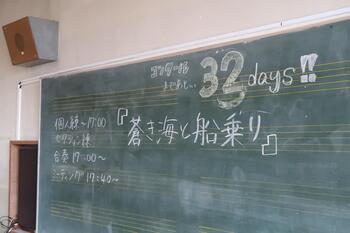 コンクール
まであと...
32days!!
『蒼き海と船乗り』
個人練〜17:00
セクション練
合奏 17:00〜
ミーティング 17:40〜